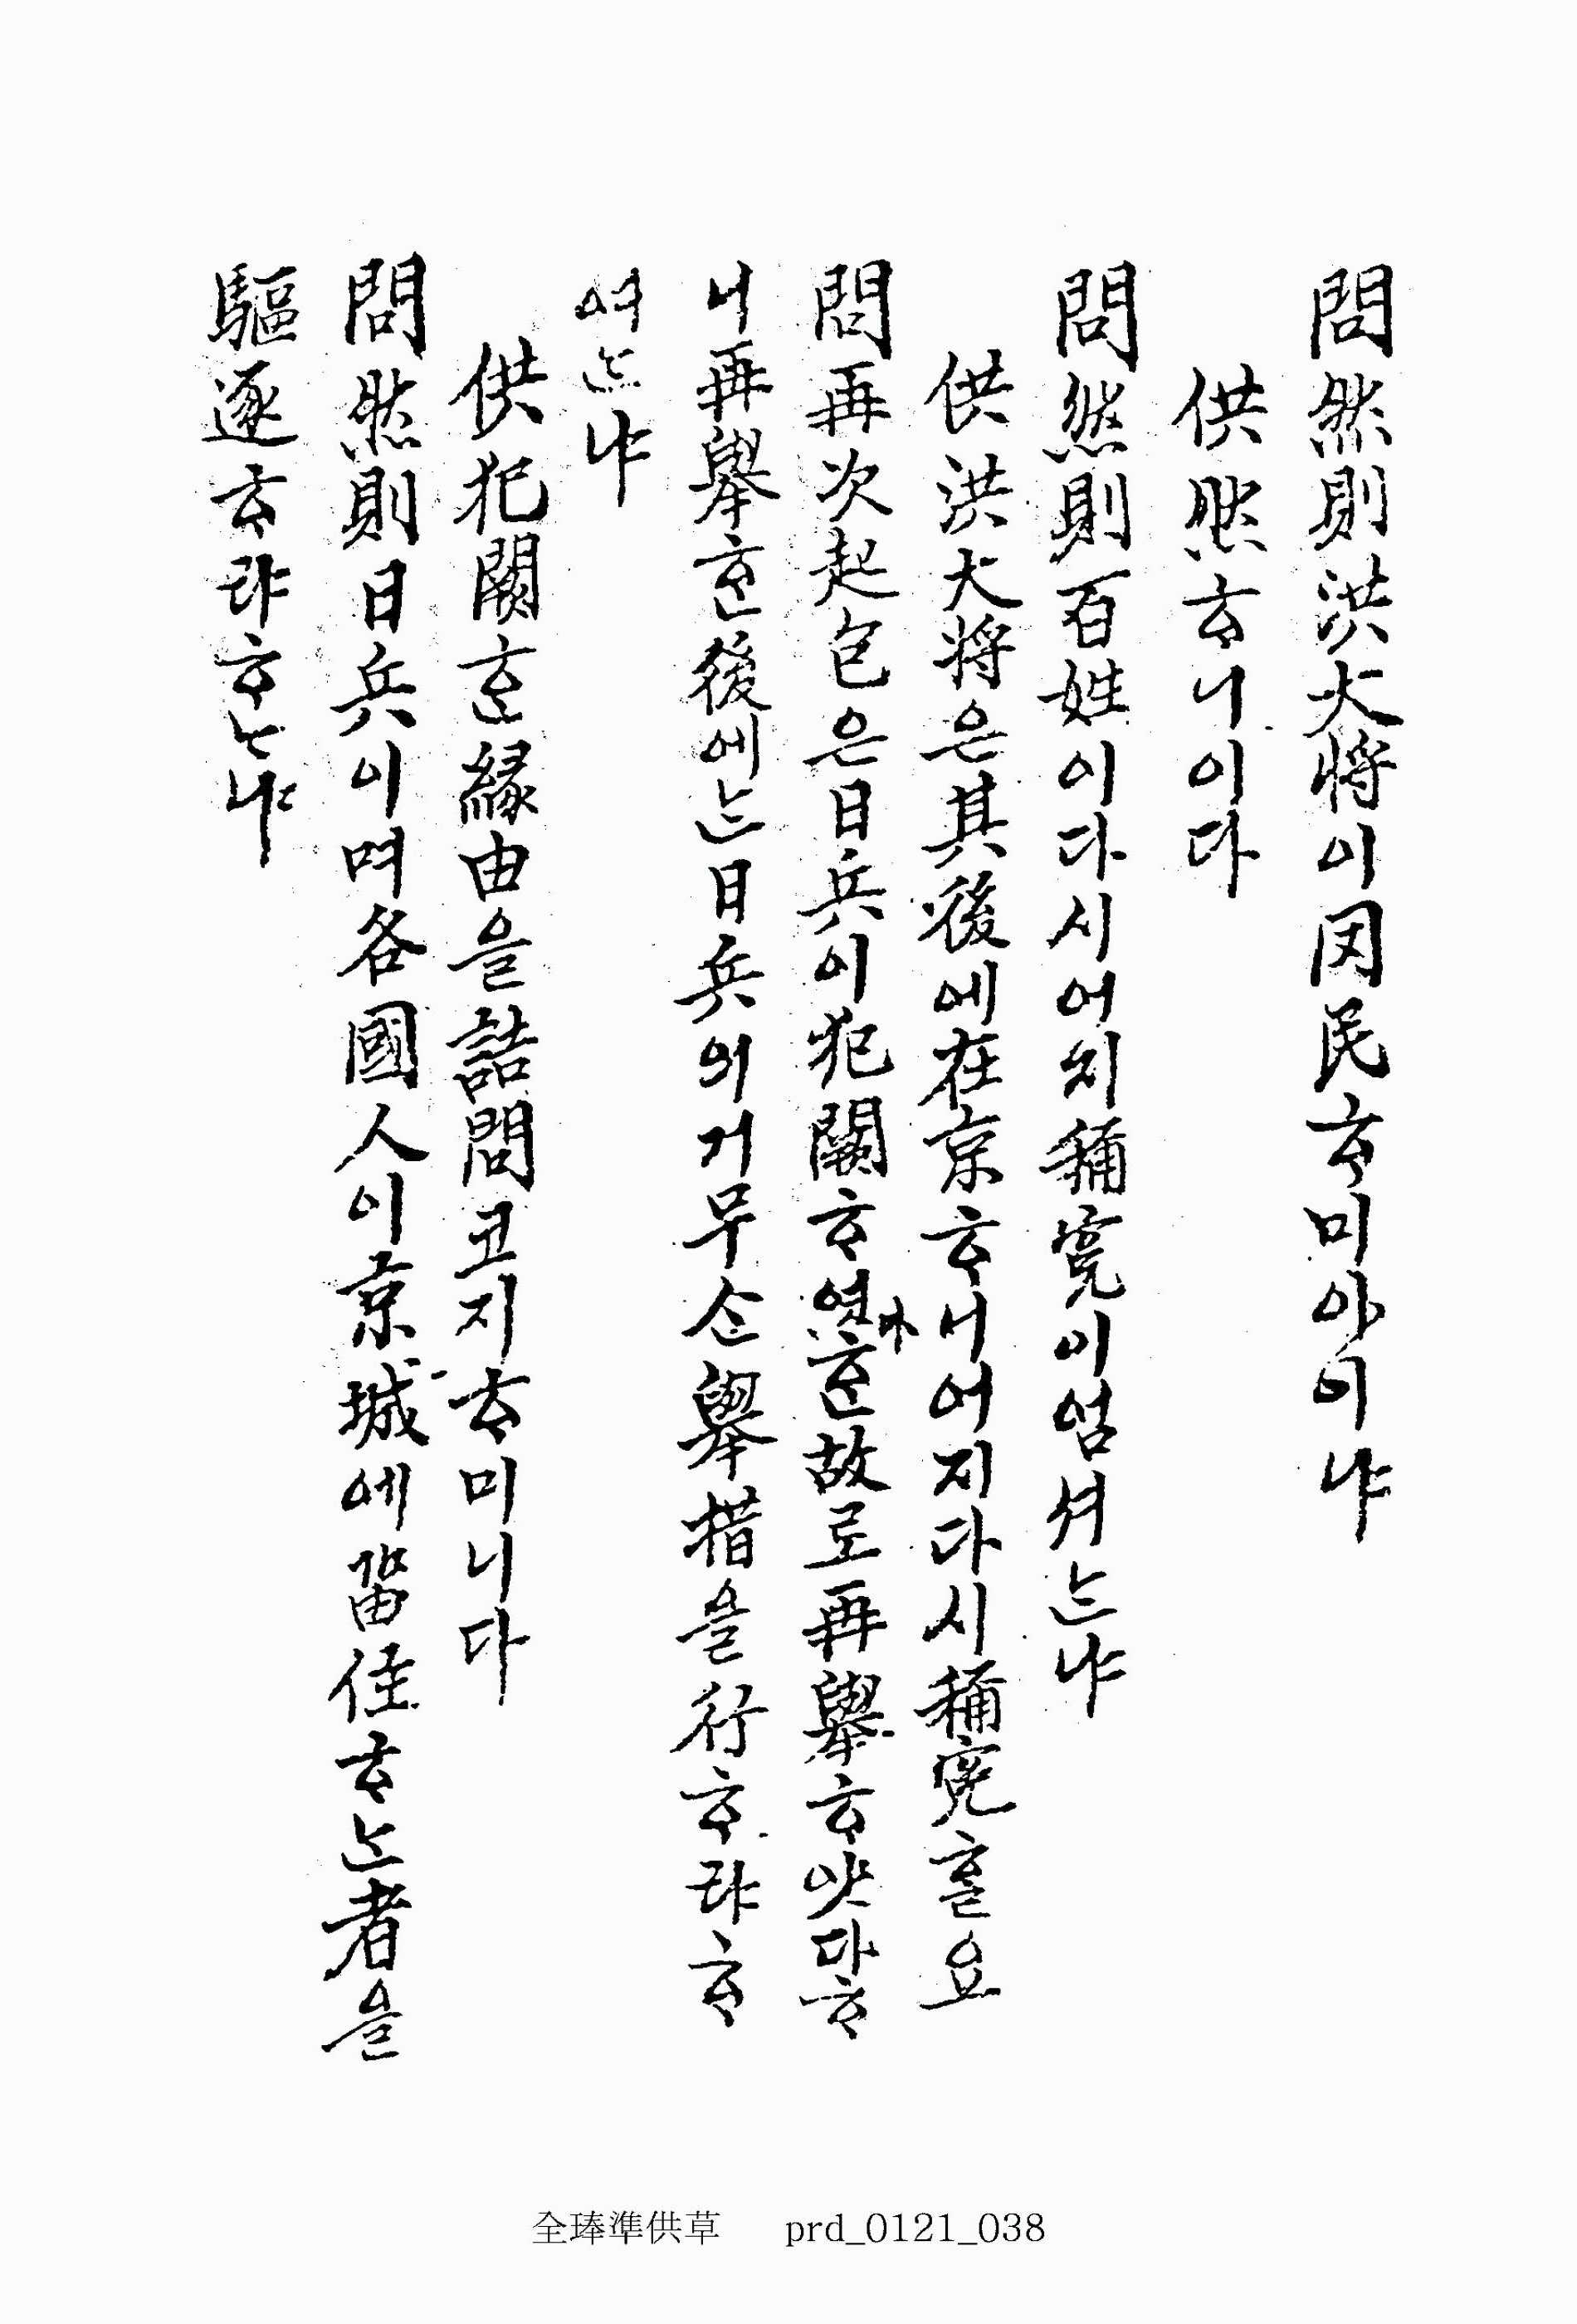 問然則洪大將이罔民ᄒᆞ미아이냐
供然ᄒᆞ니이다
問然則百姓이다시어지稱寃이업셔ᄂᆞ냐
供洪大將은其後에在京ᄒᆞ니어지다시稱寃ᄒᆞᆯ요
問再次起包은日兵이犯闕ᄒᆞ엿ᄒᆞᆫ故로再擧ᄒᆞ얏다ᄒᆞ
니再擧ᄒᆞᆫ後에ᄂᆞᆫ日兵의거무ᄉᆞᆫ擧措을行ᄒᆞ랴ᄒᆞ
여ᄂᆞ냐
供犯闕ᄒᆞᆫ緣由을詰問코지ᄒᆞ미니다
問然則日兵이며各國人이京城에留住ᄒᆞᄂᆞᆫ者을
驅逐ᄒᆞ랴ᄒᆞᄂᆞ냐
全琫準供草 prd_0121_038